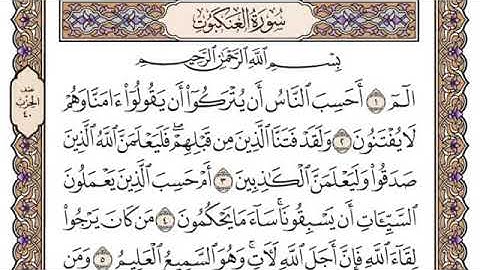 سُورَةُ العَنكَبُوتِ
بِسْمِ اللَّهِ الرَّحْمَٰنِ الرَّحِيمِ
الٓمٓ ١ أَحَسِبَ ٱلنَّاسُ أَن يُتْرَكُوٓا۟ أَن يَقُولُوٓا۟ ءَامَنَّا وَهُمْ
لَا يُفْتَنُونَ ٢ وَلَقَدْ فَتَنَّا ٱلَّذِينَ مِن قَبْلِهِمْ ۖ فَلَيَعْلَمَنَّ ٱللَّهُ ٱلَّذِينَ
صَدَقُوا۟ وَلَيَعْلَمَنَّ ٱلْكَٰذِبِينَ ٣ أَمْ حَسِبَ ٱلَّذِينَ يَعْمَلُونَ
ٱلسَّيِّـَٔاتِ أَن يَسْبِقُونَا ۚ سَآءَ مَا يَحْكُمُونَ ٤ مَن كَانَ يَرْجُوا۟
لِقَآءَ ٱللَّهِ فَإِنَّ أَجَلَ ٱللَّهِ لَءَاتٍ ۚ وَهُوَ ٱلسَّمِيعُ ٱلْعَلِيمُ ٥ وَمَن
نصف
الحزب
٤٠